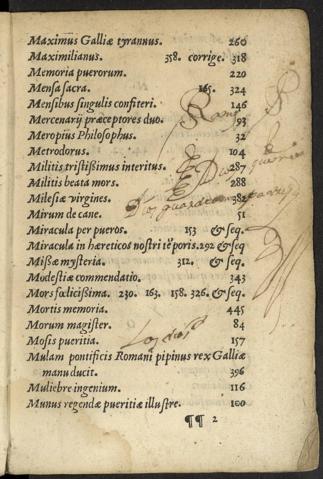 Maximus Galliæ tyrannus. 260
Maximilianus. 358. corrige. 318
Memoria puerorum. 220
Mensa sacra. 165. 324
Mensibus singulis confiteri. 146
Mercenarij præceptores duo. 193
Meropius Philosophus. 32
Metrodorus. 104
Militis tristissimus interitus. 287
Militis beata mors. 288
Milesiæ virgines. 382
Mirum de cane. 51
Miracula per pueros. 153 & seq.
Miracula in hæreticos nostri tẽporis. 292 & seq
Missæ mysteria. 312. & seq.
Modestiæ commendatio. 343
Mors fœlicissima. 230. 163. 158. 326. & seq.
Mortis memoria. 445
Morum magister. 84
Mosis pueritia. 157
Mulam pontificis Romani pipinus rex Galliæ
manu ducit. 396
Muliebre ingenium. 116
Munus regendæ pueritiæ illustre. 100
¶¶ 2